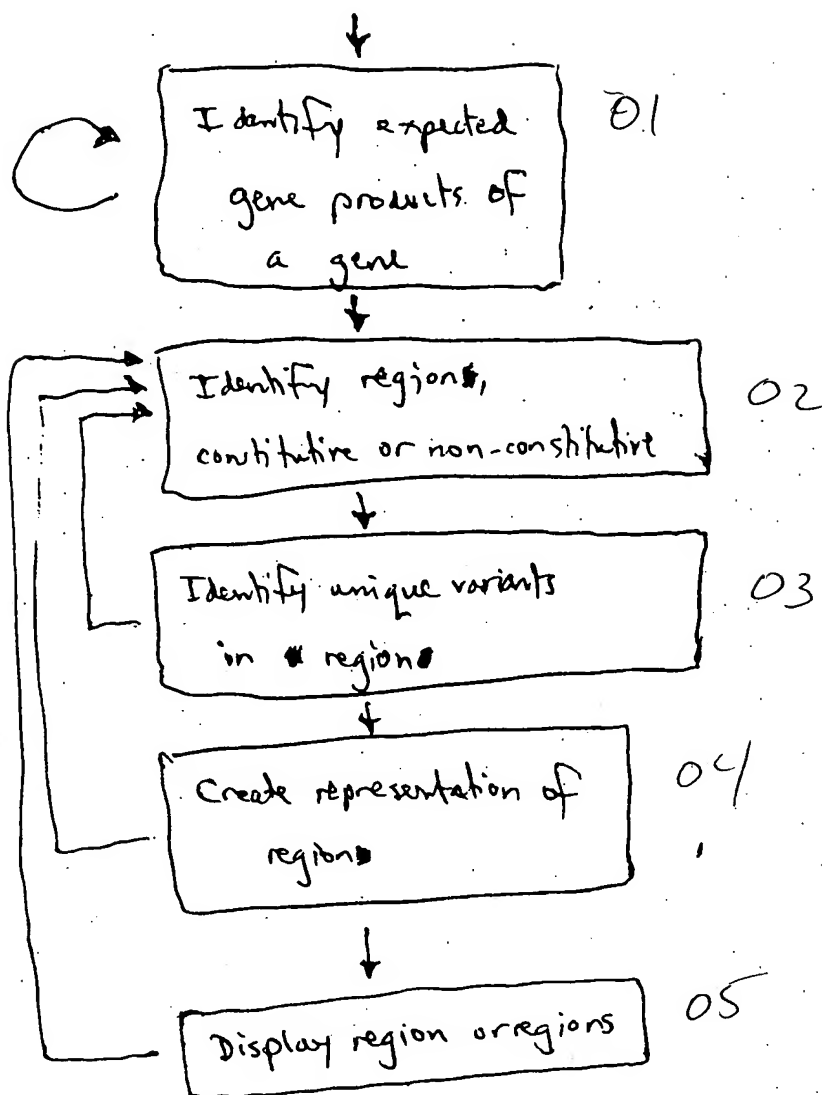 Identify expected
gene products of
a gene
01
Identify region,
constitutive or non-constitutive
02
Identify unique variants
in region
03
Create representation of
region
04
Display region or regions
05